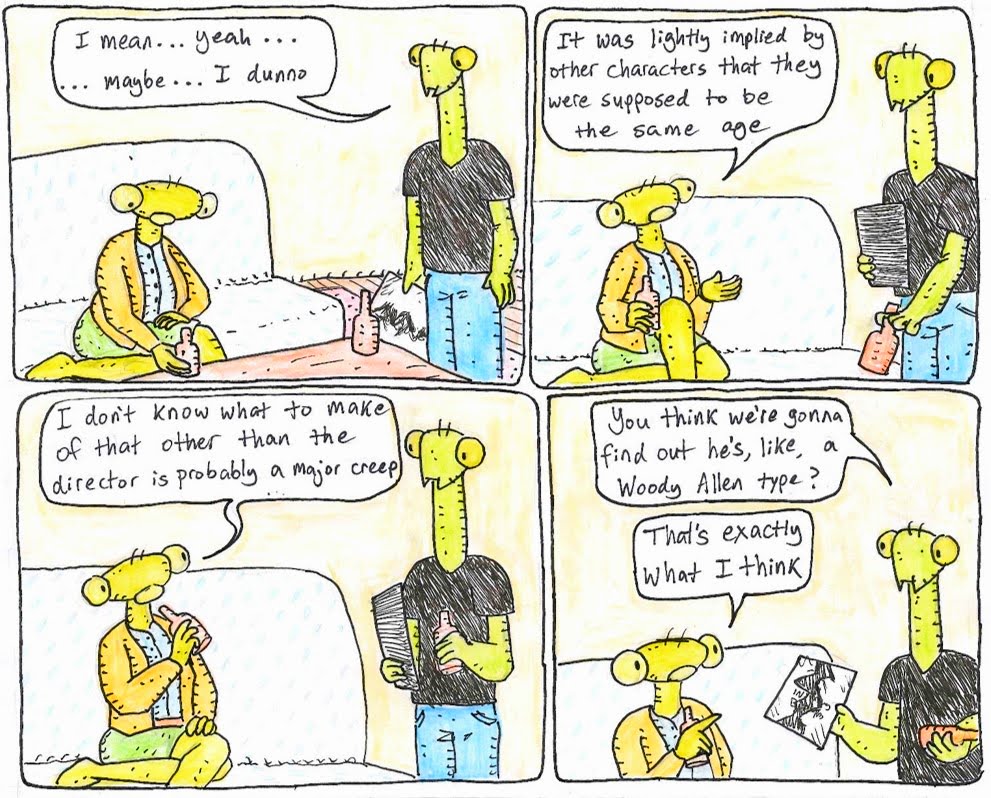 I mean... yeah...
... maybe... I dunno
It was lightly implied by
other characters that they
were supposed to be
the same age
I don't know what to make
of that other than the
director is probably a major creep
You think we're gonna
find out he's, like, a
Woody Allen type?
That's exactly
what I think